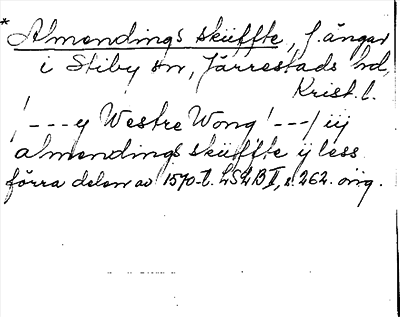 * Almendings skieffte, f. ängar
i Stiby sn, Järrestads hd,
Krist. l.
! --- y Westre Wong! ---/ iij
almendings skieffte ij less
förra delen av 1570-t. LSLB II, s. 262. orig.